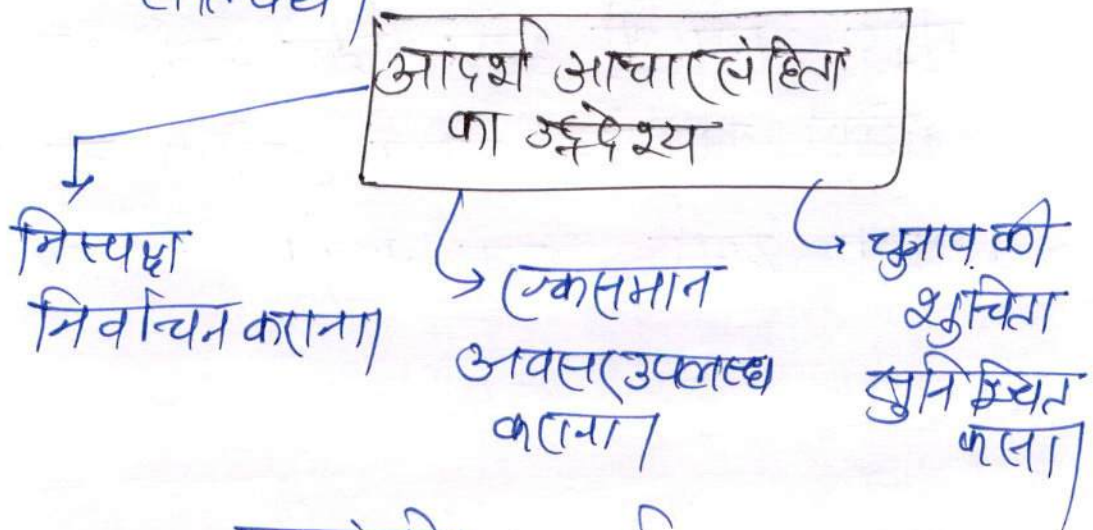 आदर्श आचार संहिता
का उद्देश्य
निस्पक्ष
निर्वाचन कराना।
एकसमान
अवसर उपलब्ध
कराना।
चुनाव की
शुचिता
सुनिश्चित
करना।